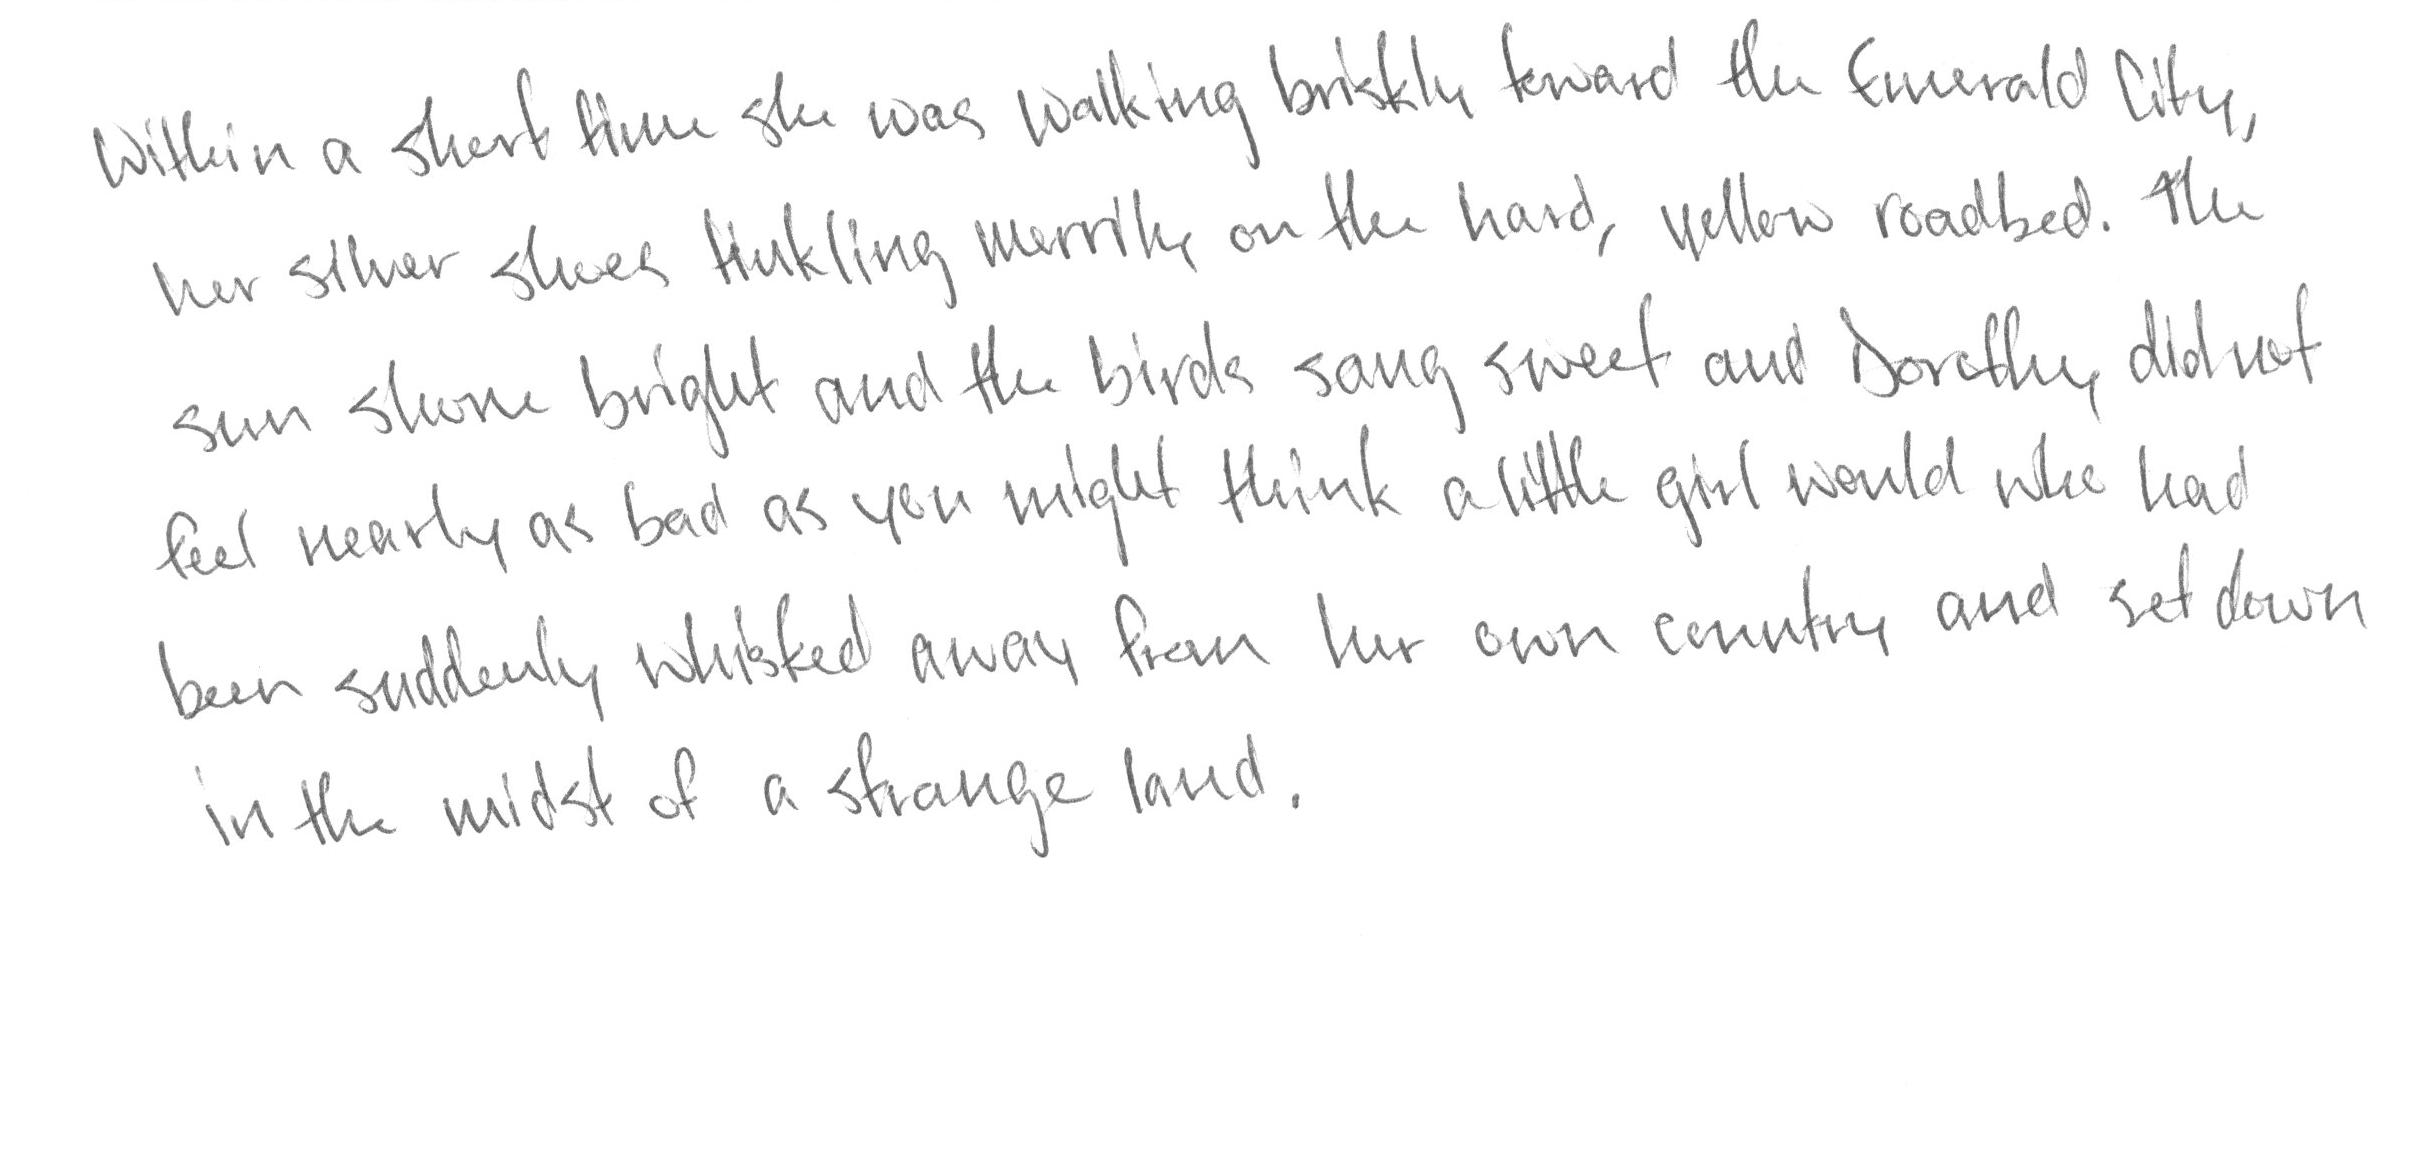 Within a short time she was walking briskly toward the Emerald City,
her silver shoes tinkling merrily on the hard, yellow roadbed. The
sun shone bright and the birds sang sweet and Dorothy did not
feel nearly as bad as you might think a little girl would who had
been suddenly whisked away from her own country and set down
in the midst of a strange land.